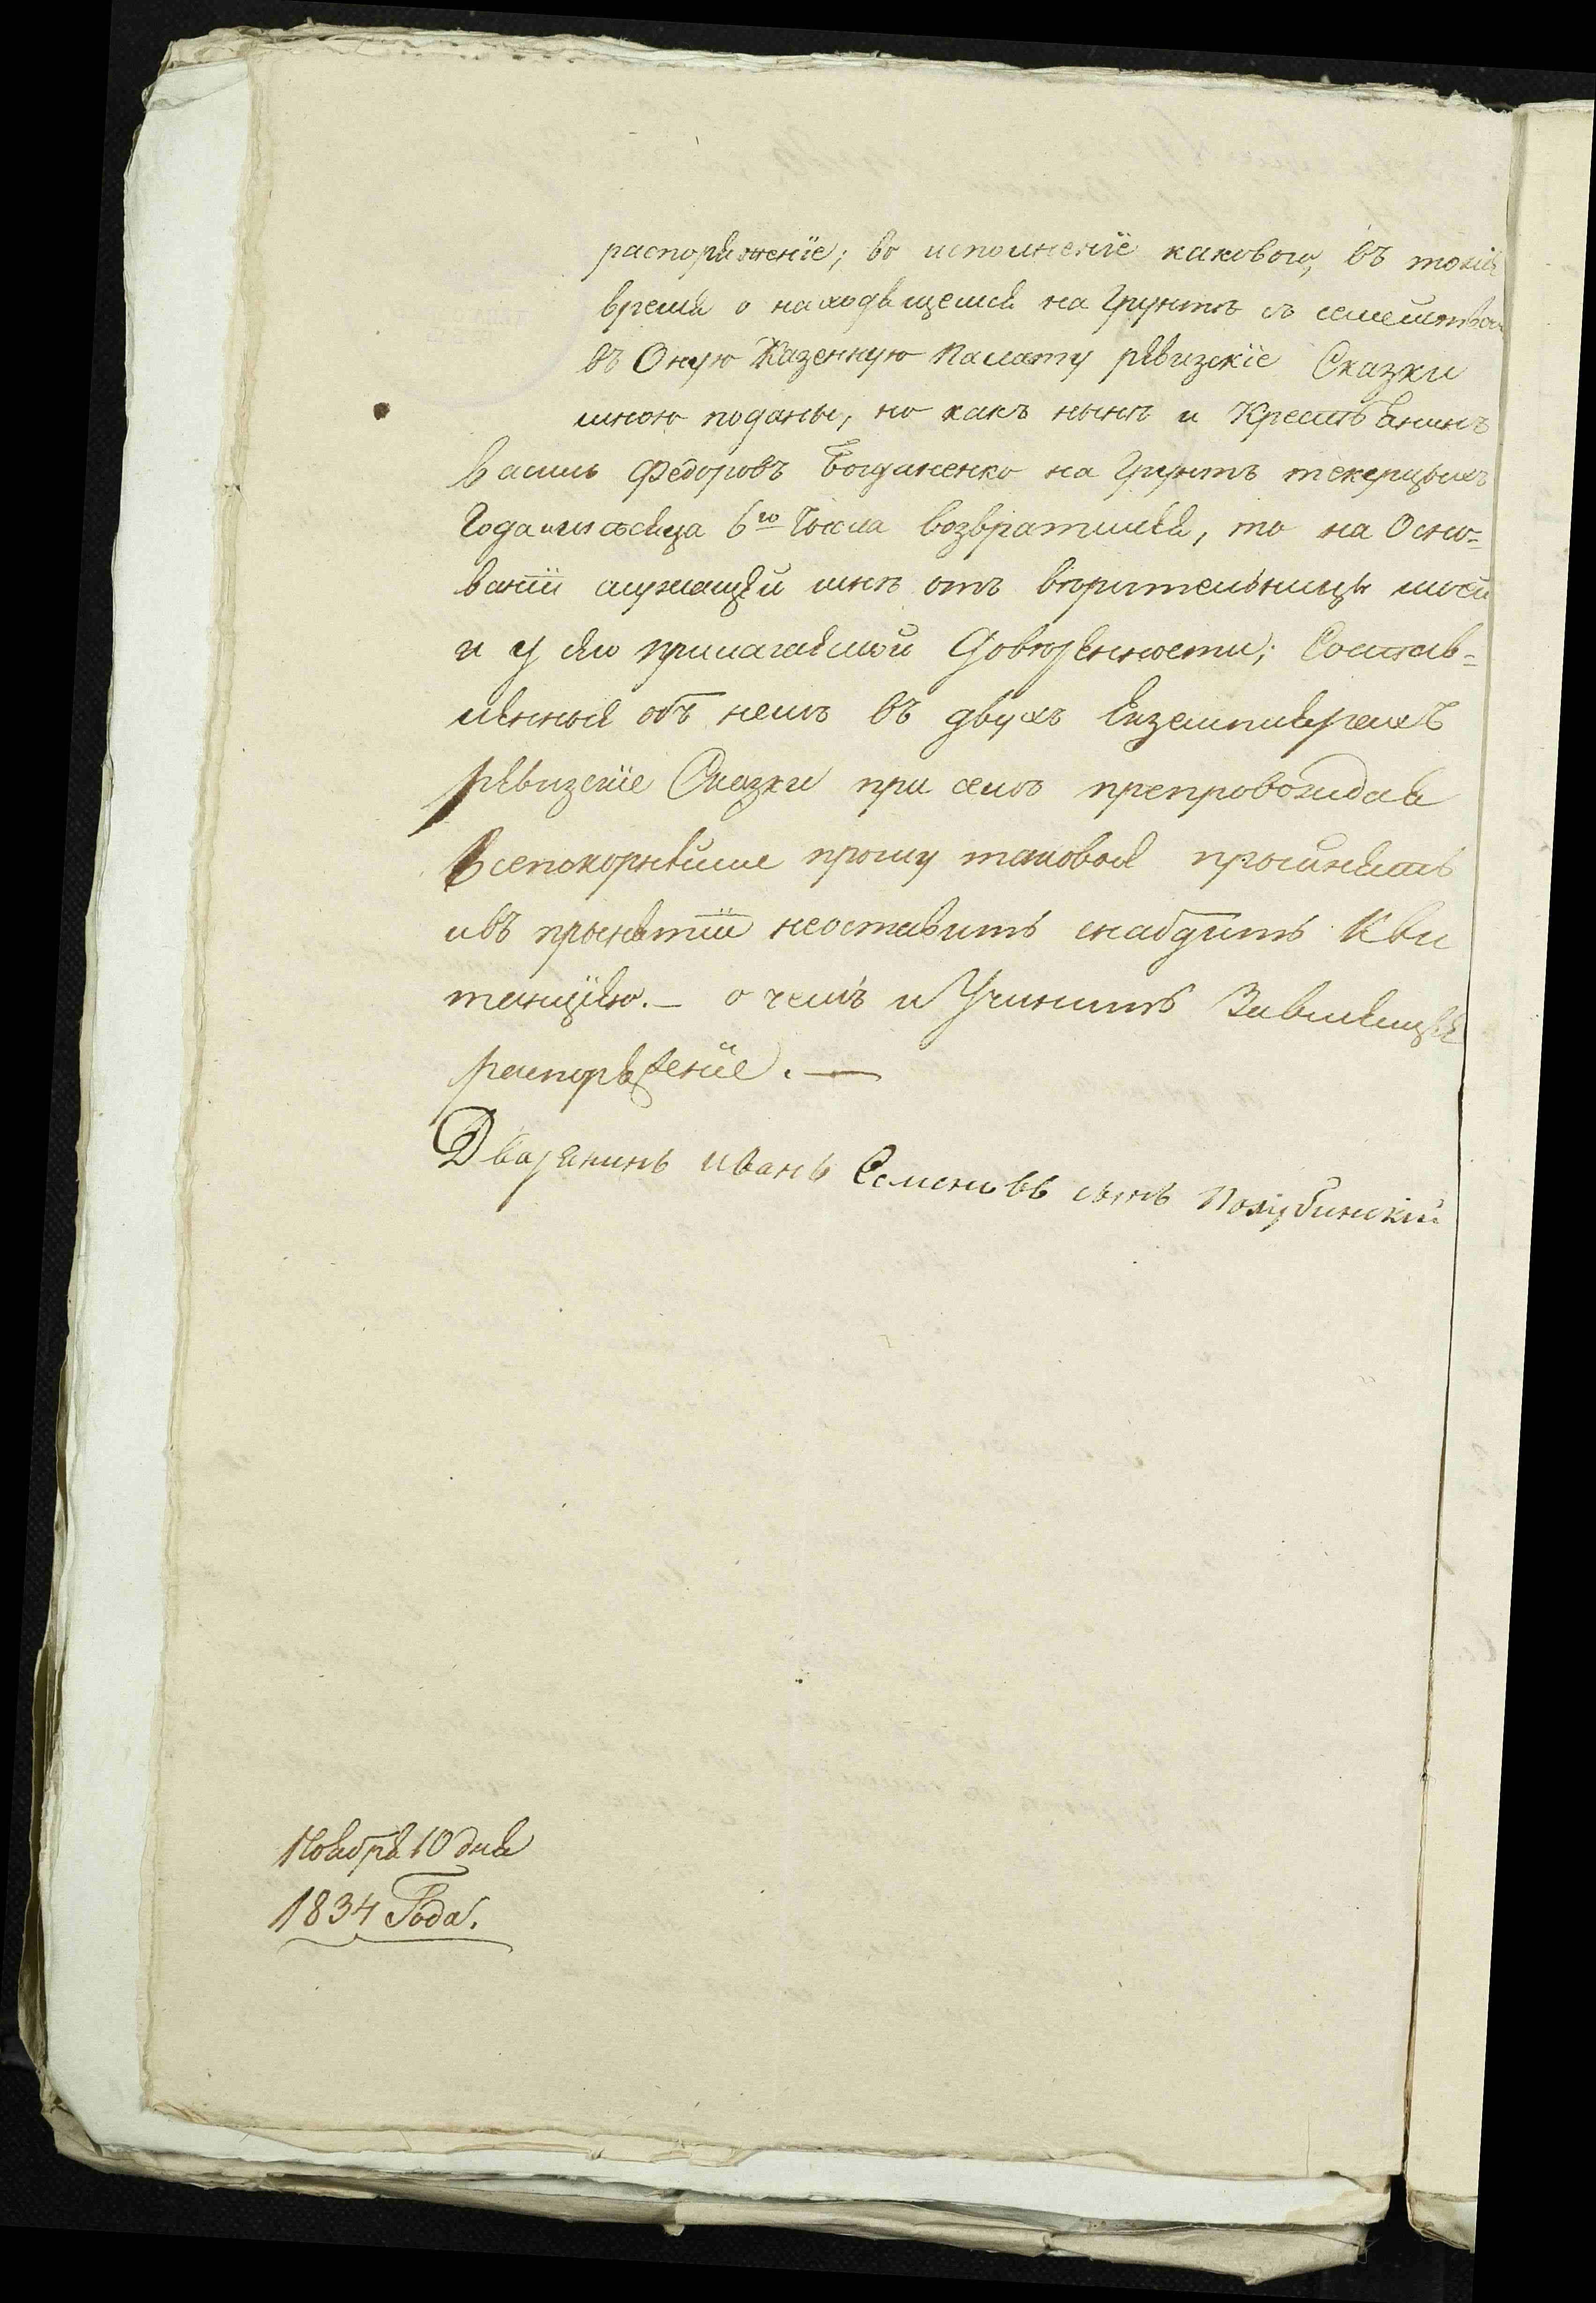 распоряженіе; во исполненіе каковаго, въ тоже
время о находящемся на Грунтѣ съ семействомъ
въ Оную Казенную палату ревизскіе Сказки
мною поданы, но какъ нынѣ и Крестьянинъ
Василь Федоровъ Богданенко на Грунтъ текущихъ
Года и мѣсяца 6го Числа возвратился, то на Осно=
ваніи служащей мнѣ отъ вѣрительницы моей
и у сего прилагаемой Довѣренности; Состав=
ленныя объ немъ въ двухъ Екземплярахъ
ревизскіе Сказки при семъ препровождая
Всепокорнейше прошу таковыя
ивъ принятіи неоставить снабдить Кви
танціею. — о чемъ и Учинить Зависящее
распоряженіе. —
Дворянинъ иванъ Семеновъ сынъ Полубинскій
Ноября 10 дня
1834 Года.